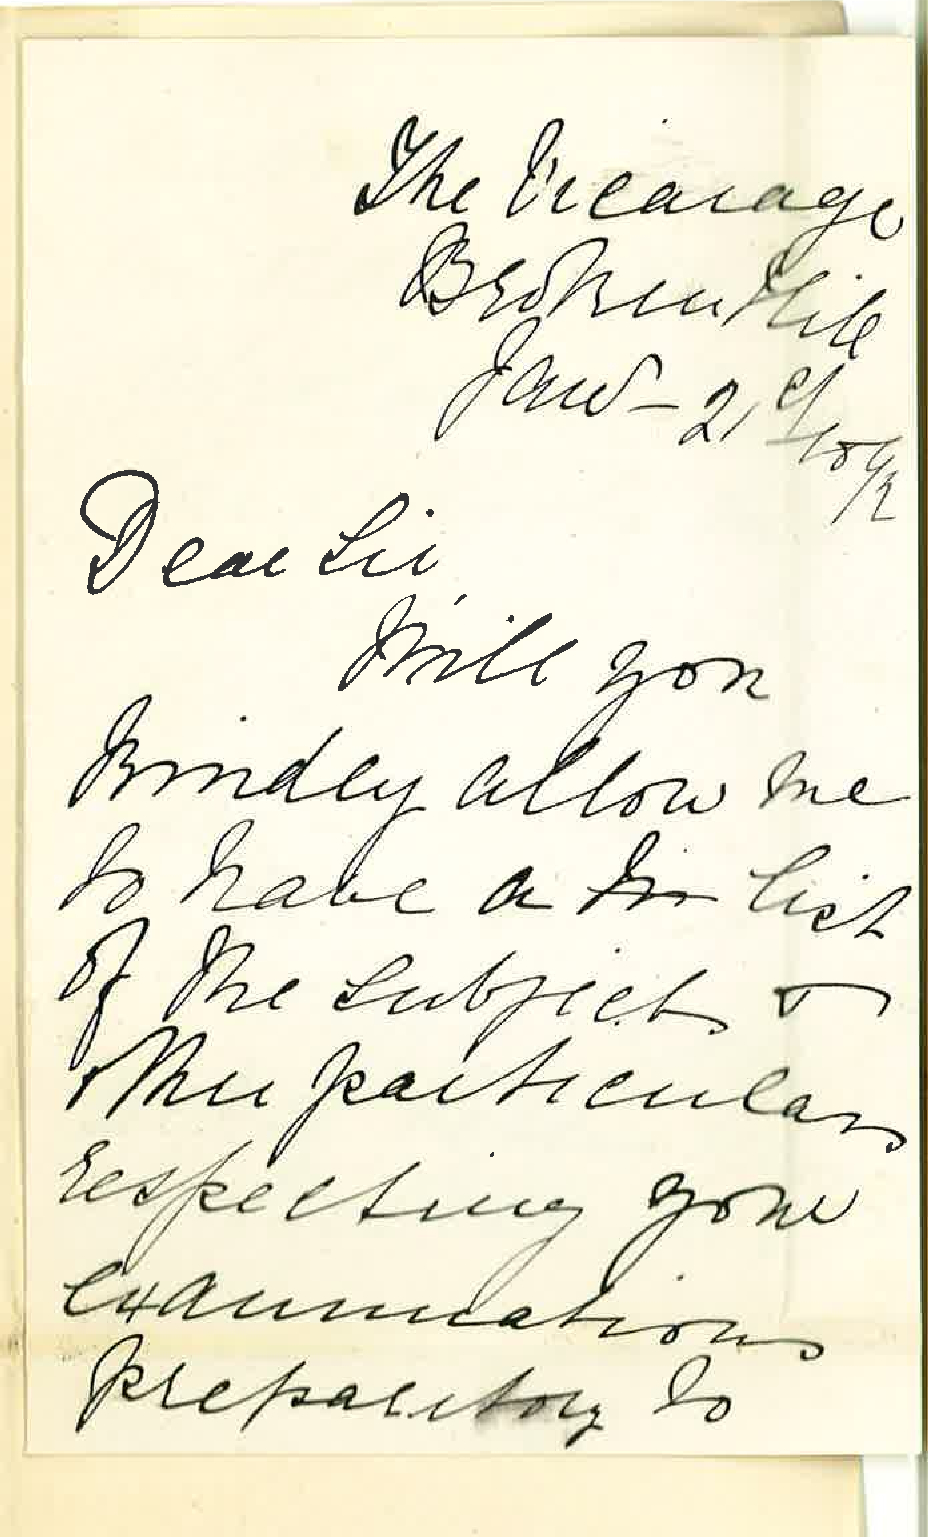 The Vicarage
Broken Hill
Jan - 21
Dear Sir
Will you
kindly allow me
to have a list
of the subjects &
other particulars
respecting your
examinations
preparatory to